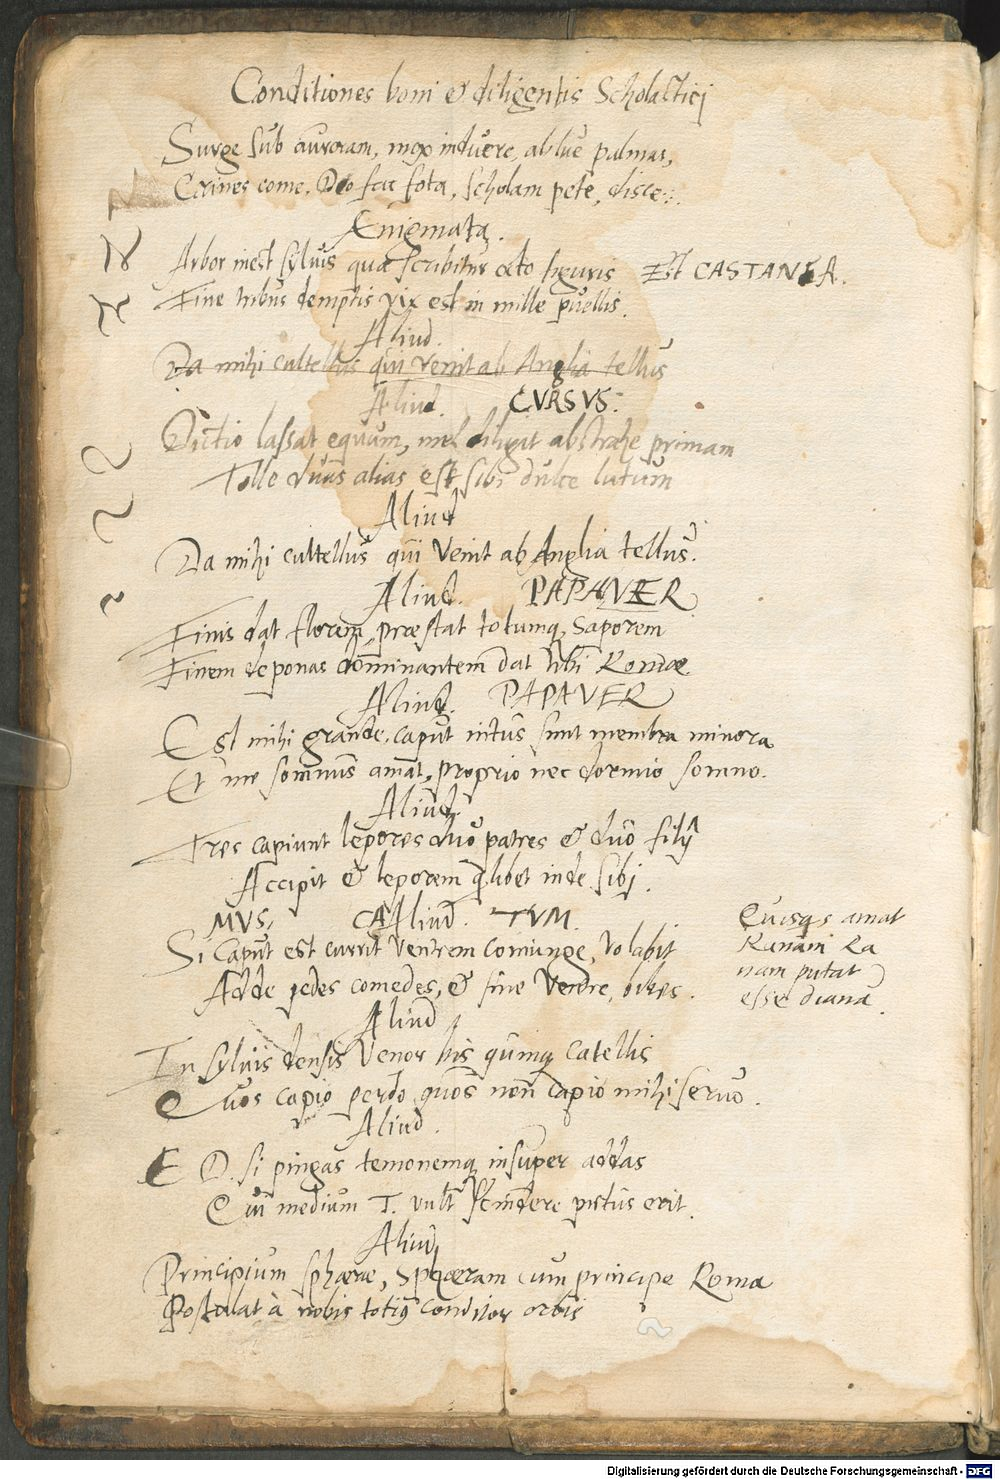 Conditiones boni & diligentis Scholastici
Surge sub auroram, mox induere, ablue palmas,
Crines come, Deo fer vota, scholam pete, disce.
Ænigmata.
Arbor inest sylvis quæ scribitur octo figuris Est CASTANEA.
Fine tribus demptis vix est in mille puellis.
Aliud.
Da mihi cultellus qui venit ab Anglia tellus
Aliud. CVRSVS.
Dictio lassat equum, abstrahe primam
Tolle duas alias est sibi dulce lutum
Aliud
Da mihi cultellus qui venit ab Anglia tellus.
Aliud. PAPAVER
Finis dat florem, præstat totumq, saporem
Finem deponas dominantem dat tibi Romæ
Aliud. PAPAVER
Est mihi grande, caput intus sunt membra minora
Et me somnus amat, proprio nec dormio somno.
Aliud.
Tres capiunt lepores duo patres & duo filij
Accipit & leporem qlibet inde sibj.
MVS. CA Aliud. TVM.
Si caput est currit ventrem coniunge, volabit
Adde pedes comedes, & sine ventre, bibes.
Quisqs amat
Ranam Ra
nam putat
esse dianã.
Aliud
In sylvis densis venor bis quinq catellis
Quos capio perdo, quos non capio mihi servo.
Aliud.
E D. si pingas temonemq insuper addas
Cui medium T. vult scindere pistus erit.
Aliud
Principium sphæræ, Sphæram cum principe Roma
Postulat à nobis totiq conditor orbis
Digitalisierung gefördert durch die Deutsche Forschungsgemeinschaft - DFG